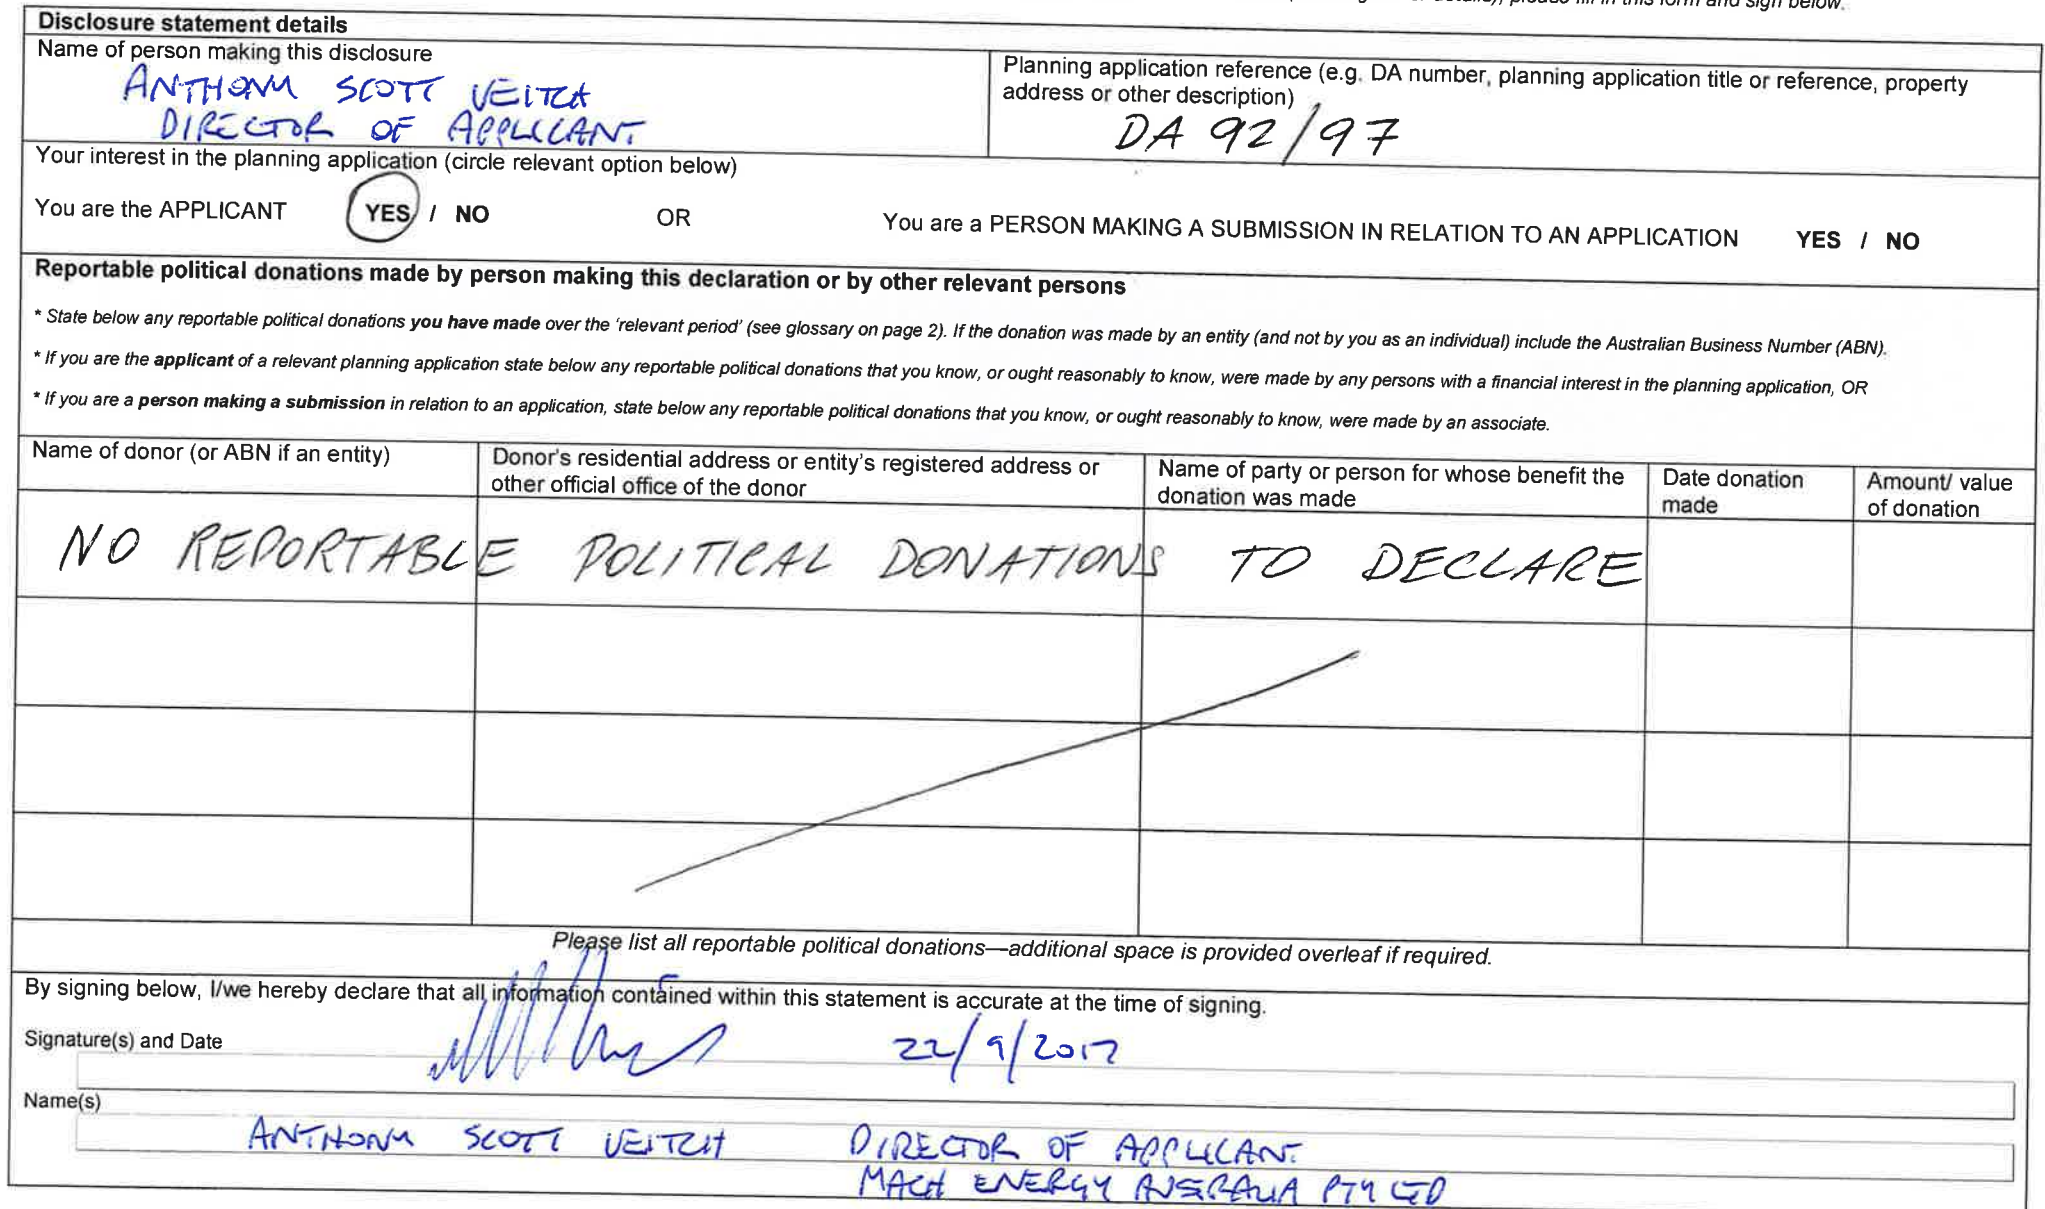 please fill in this form and sign below.
Disclosure statement details
Name of person making this disclosure
ANTHONY SCOTT VEITCH
DIRECTOR OF APPLICANT
Planning application reference (e.g. DA number, planning application title or reference, property
address or other description)
DA 92/97
Your interest in the planning application (circle relevant option below)
You are the APPLICANT YES / NO OR You are a PERSON MAKING A SUBMISSION IN RELATION TO AN APPLICATION YES / NO
Reportable political donations made by person making this declaration or by other relevant persons
* State below any reportable political donations you have made over the 'relevant period' (see glossary on page 2). If the donation was made by an entity (and not by you as an individual) include the Australian Business Number (ABN).
* If you are the applicant of a relevant planning application state below any reportable political donations that you know, or ought reasonably to know, were made by any persons with a financial interest in the planning application, OR
* If you are a person making a submission in relation to an application, state below any reportable political donations that you know, or ought reasonably to know, were made by an associate.
Name of donor (or ABN if an entity)
Donor's residential address or entity's registered address or
other official office of the donor
Name of party or person for whose benefit the
donation was made
Date donation
made
Amount/ value
of donation
NO REPORTABLE POLITICAL DONATIONS TO DECLARE
Please list all reportable political donations—additional space is provided overleaf if required.
By signing below, I/we hereby declare that all information contained within this statement is accurate at the time of signing.
Signature(s) and Date
22/9/2017
Name(s)
ANTHONY SCOTT VEITCH DIRECTOR OF APPLICANT
MACH ENERGY AUSTRALIA PTY LTD